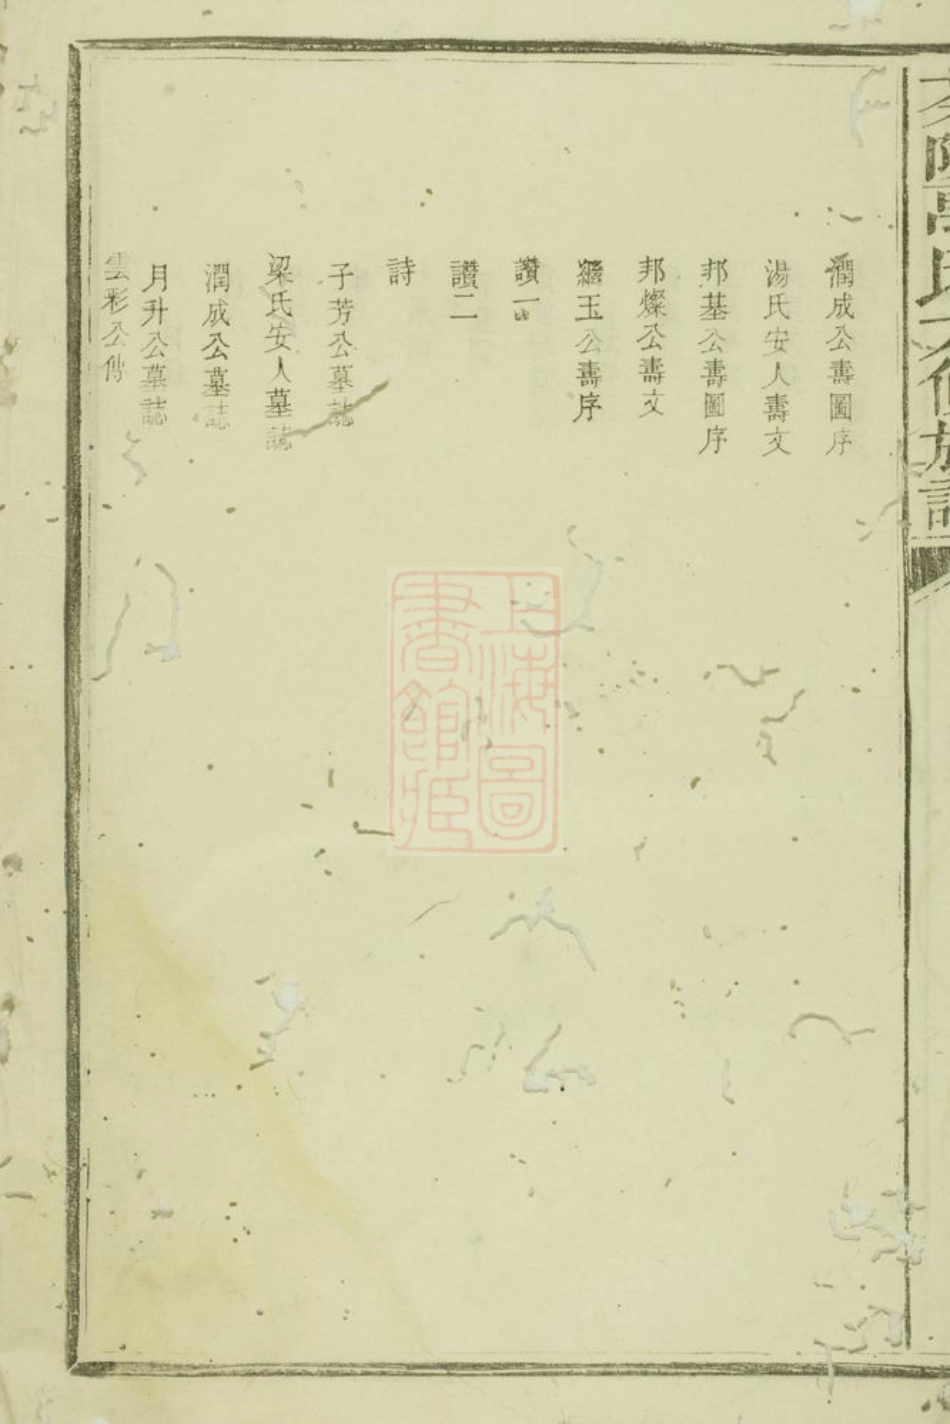 潤成公壽圖序
湯氏安人壽文
邦基公壽圖序
邦燦公壽文
繼玉公壽序
讚一
讚二
詩
子芳公墓誌
梁氏安人墓誌
潤成公墓誌
月升公墓誌
雲彩公傳
上海圖
書館藏